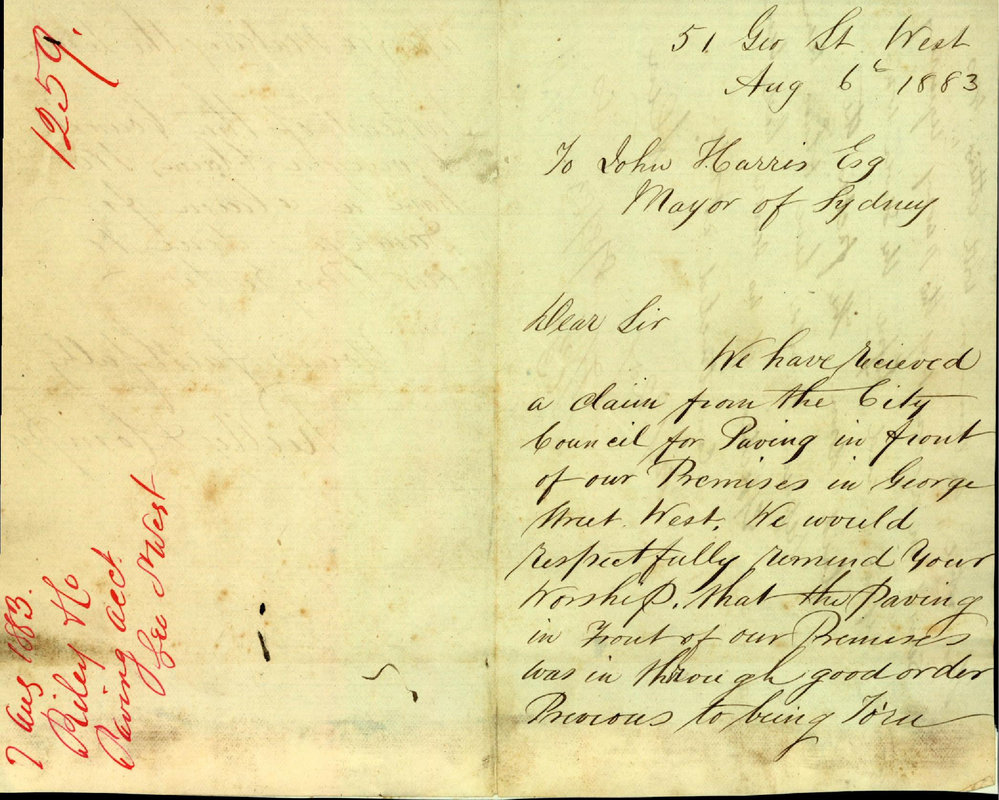 1259.
7 Aug 1883.
Riley H
Paving acct
Geo St West
51 Geo St West
Aug 6th 1883
To John Harris Esq
Mayor of Sydney
Dear Sir
We have recieved
a claim from the City
Council for Paving in front
of our Premises in George
Street West. We would
respectfully remind Your
Worship. that the Paving
in Front of our Premises
was in through good order
Previous to being Torn